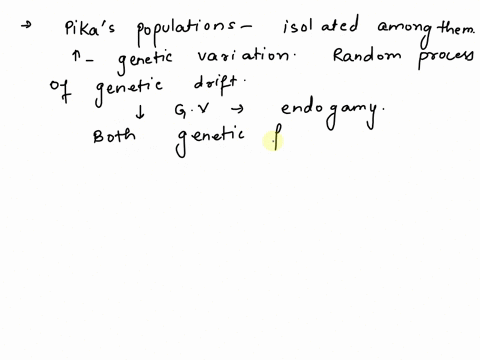 → Pika's populations – isolated among them.
↑ – genetic variation. Random process
of genetic drift.
↓ G.V → endogamy.
Both genetic